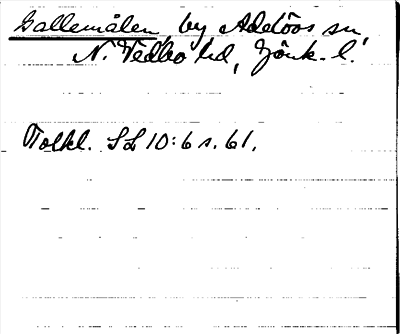 Gallemålen, by Adelövs sn,
N. Vedbo hd, Jönk. l.
Tolkl. SL 10:6 s. 61.